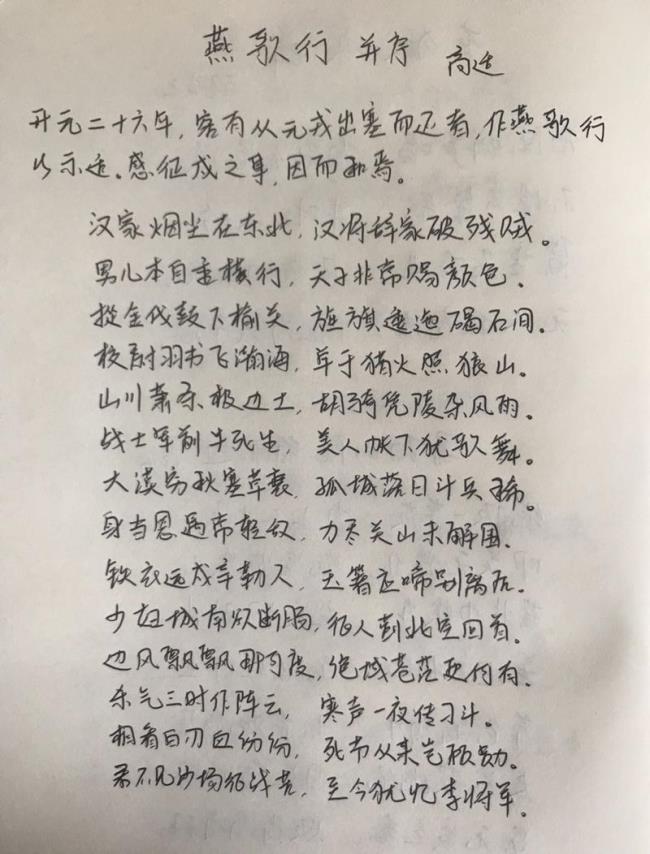 燕歌行 并序 高适
开元二十六年，客有从元戎出塞而还者，作燕歌行
以示适。感征戍之事，因而和焉。
汉家烟尘在东北，汉将辞家破残贼。
男儿本自重横行，天子非常赐颜色。
摐金伐鼓下榆关，旌旗逶迤碣石间。
校尉羽书飞瀚海，单于猎火照狼山。
山川萧条极边土，胡骑凭陵杂风雨。
战士军前半死生，美人帐下犹歌舞。
大漠穷秋塞草衰，孤城落日斗兵稀。
身当恩遇常轻敌，力尽关山未解围。
铁衣远戍辛勤久，玉箸应啼别离后。
少妇城南欲断肠，征人蓟北空回首。
边风飘飘那可度，绝域苍茫更何有。
杀气三时作阵云，寒声一夜传刁斗。
相看白刃血纷纷，死节从来岂顾勋。
君不见沙场征战苦，至今犹忆李将军。